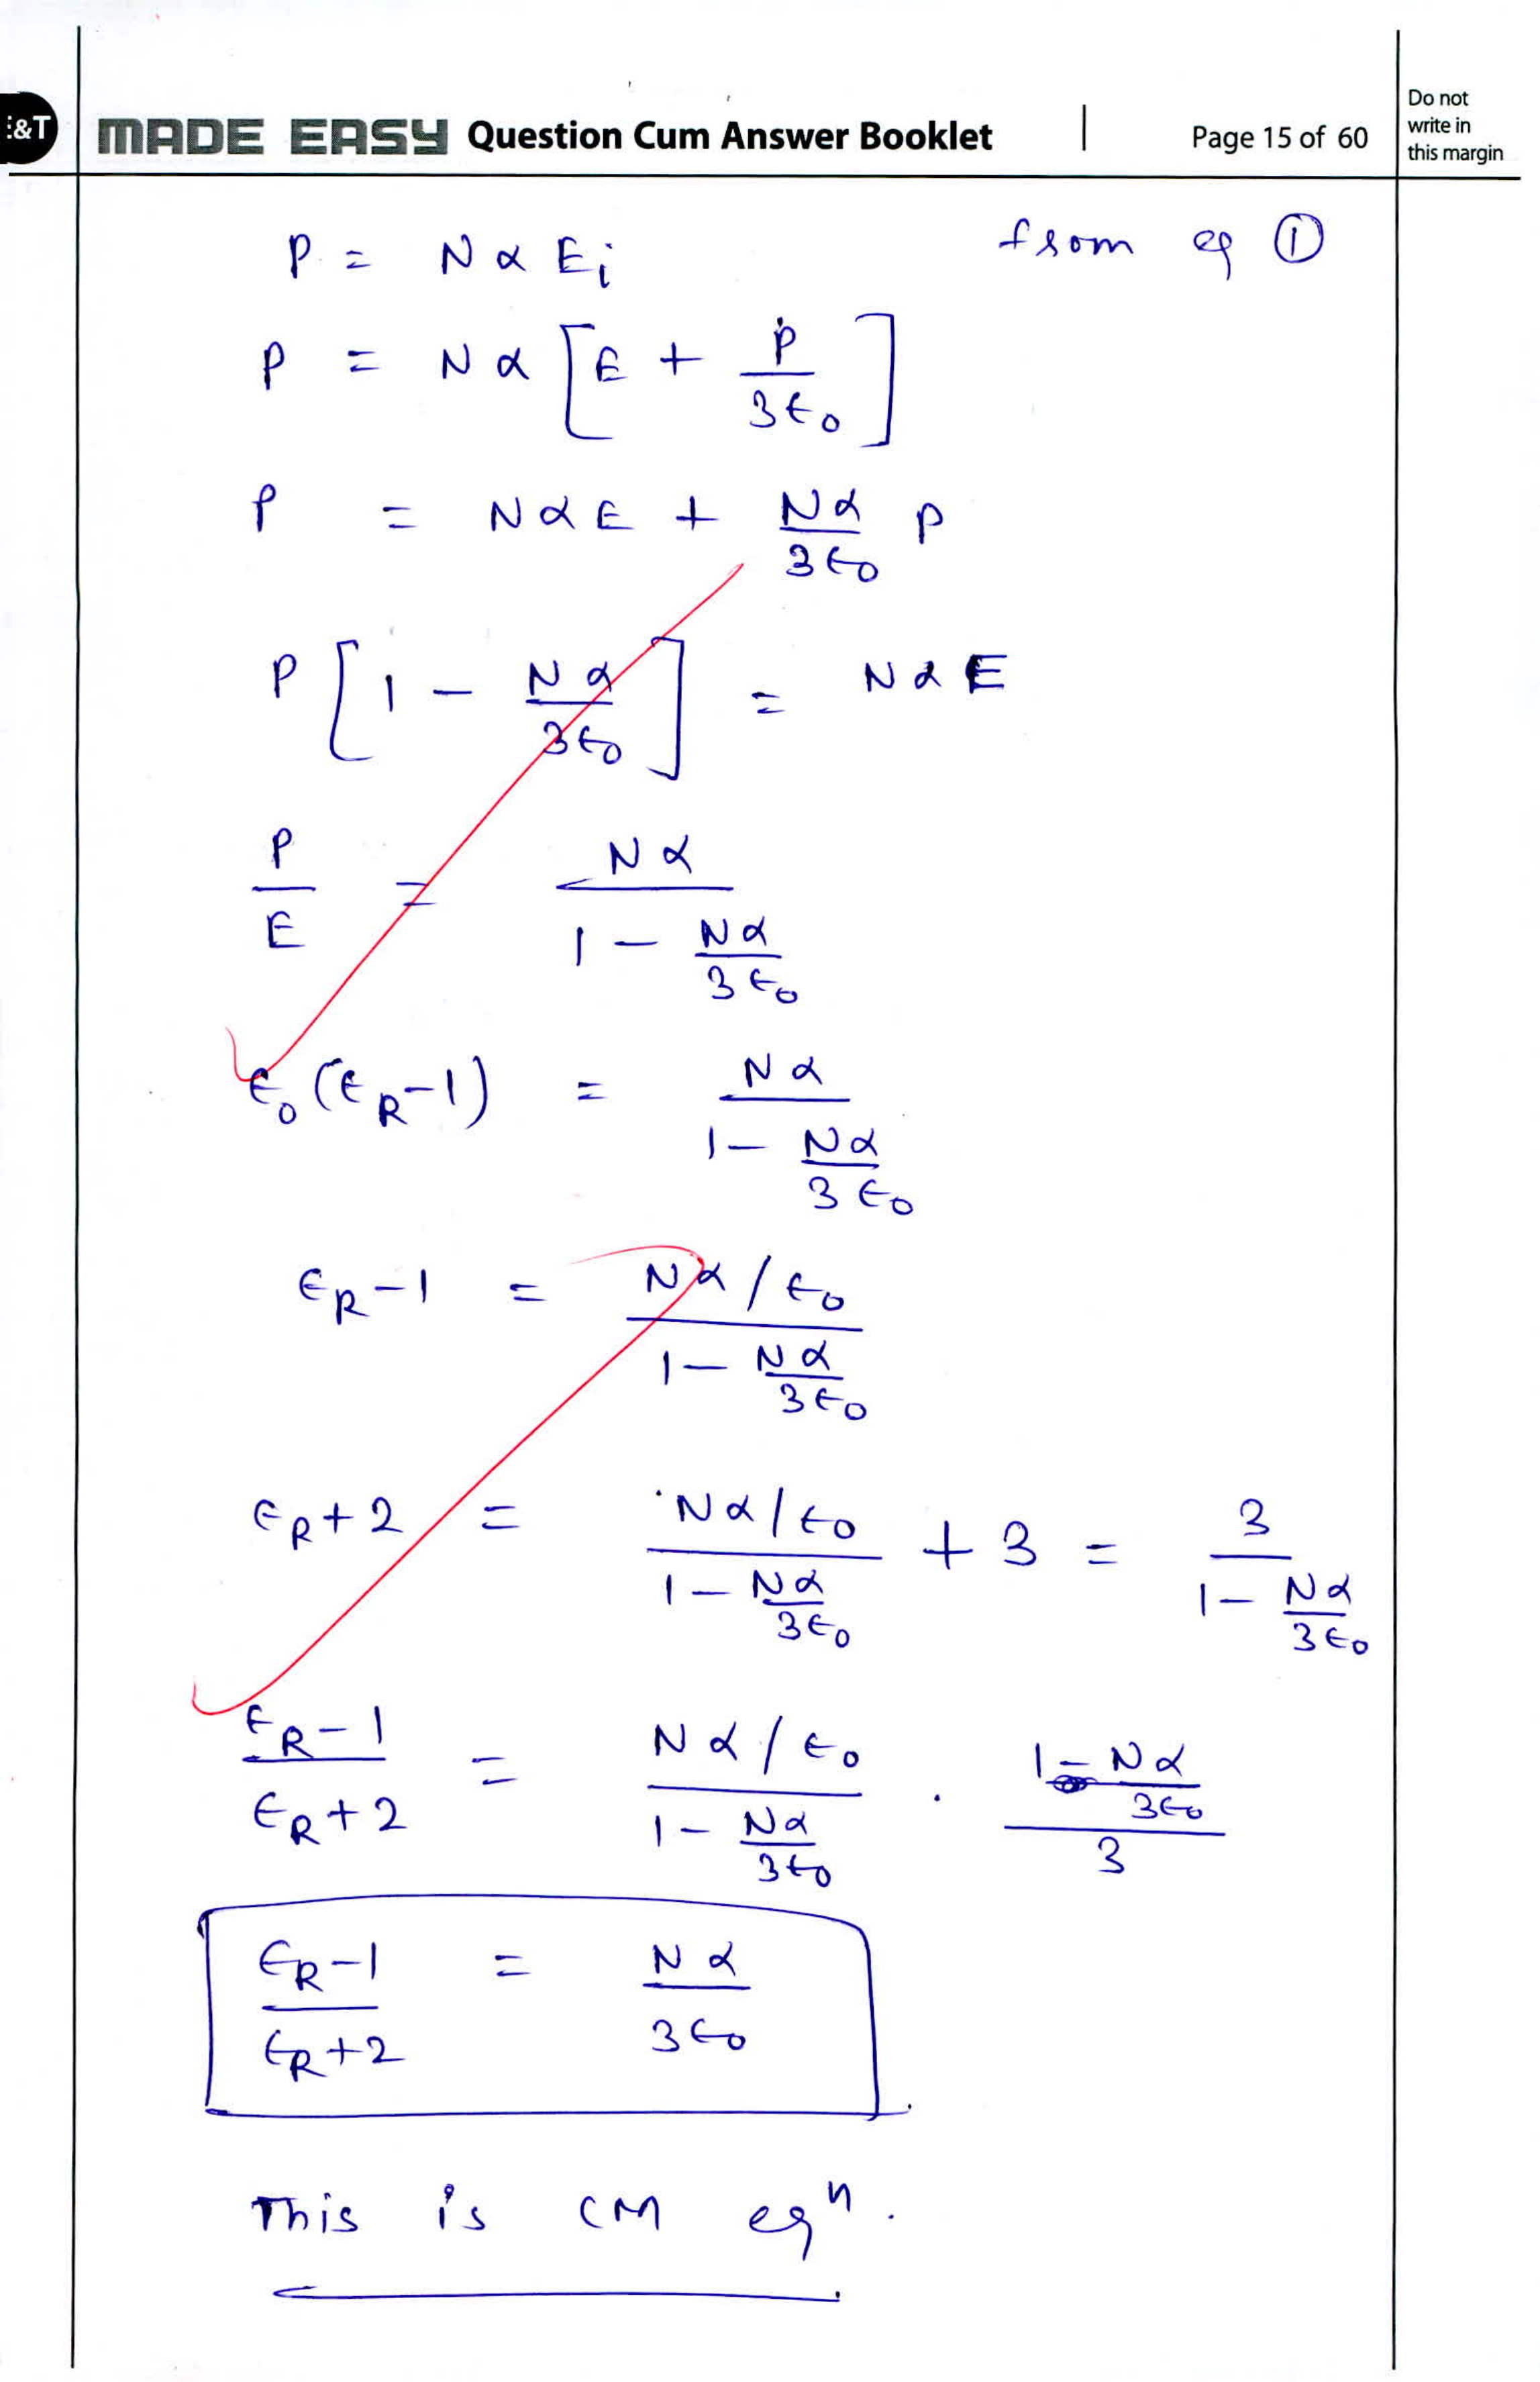 E&T MADE EASY Question Cum Answer Booklet | Page 15 of 60
Do not
write in
this margin
P = NαEi from eq ①
P = Nα [E + P/3ϵ0]
P = NαE + Nα/3ϵ0 P
P [1 - Nα/3ϵ0] = NαE
P/E = Nα / (1 - Nα/3ϵ0)
ϵ0(ϵR-1) = Nα / (1 - Nα/3ϵ0)
ϵR-1 = (Nα/ϵ0) / (1 - Nα/3ϵ0)
ϵR+2 = (Nα/ϵ0) / (1 - Nα/3ϵ0) + 3 = 3 / (1 - Nα/3ϵ0)
(ϵR-1)/(ϵR+2) = (Nα/ϵ0) / (1 - Nα/3ϵ0) . (1 - Nα/3ϵ0) / 3
(ϵR-1)/(ϵR+2) = Nα/3ϵ0
This is CM eqⁿ.